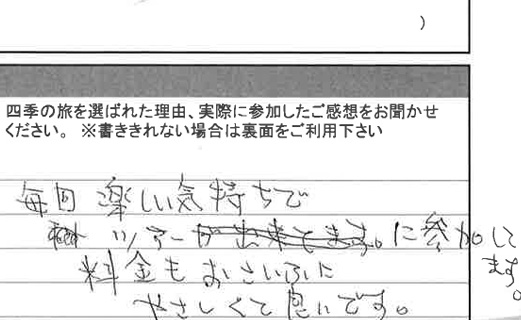 ）
四季の旅を選ばれた理由、実際に参加したご感想をお聞かせ
ください。 ※書ききれない場合は裏面をご利用下さい
毎回 楽しい気持ちで
ツアーに参加して
ます。
料金もおさいふに
やさしくて良いです。